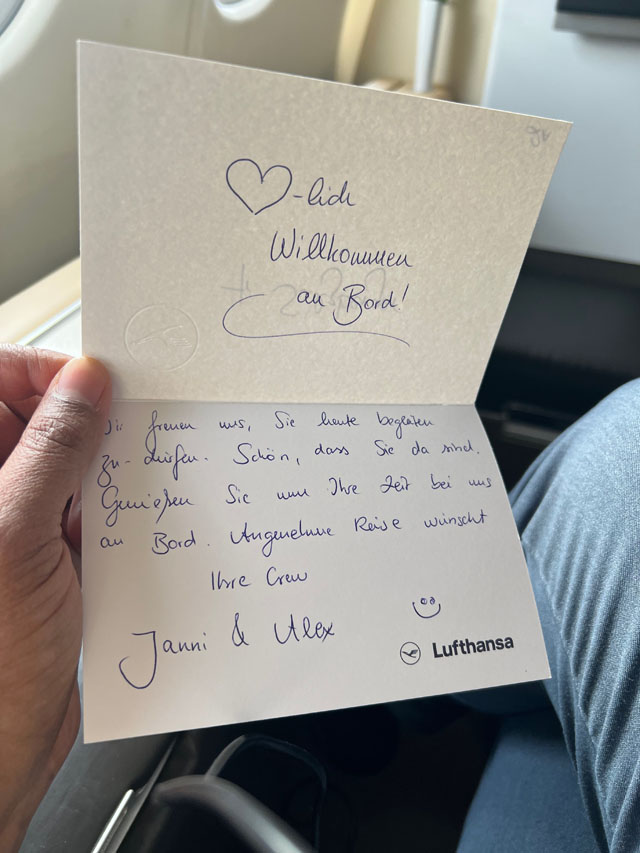 ♡-lich
Willkommen
an Bord!
Wir freuen uns, Sie heute begleiten
zu dürfen. Schön, dass Sie da sind.
Genießen Sie nun Ihre Zeit bei uns
an Bord. Angenehme Reise wünscht
Ihre Crew
Janni & Alex
Lufthansa